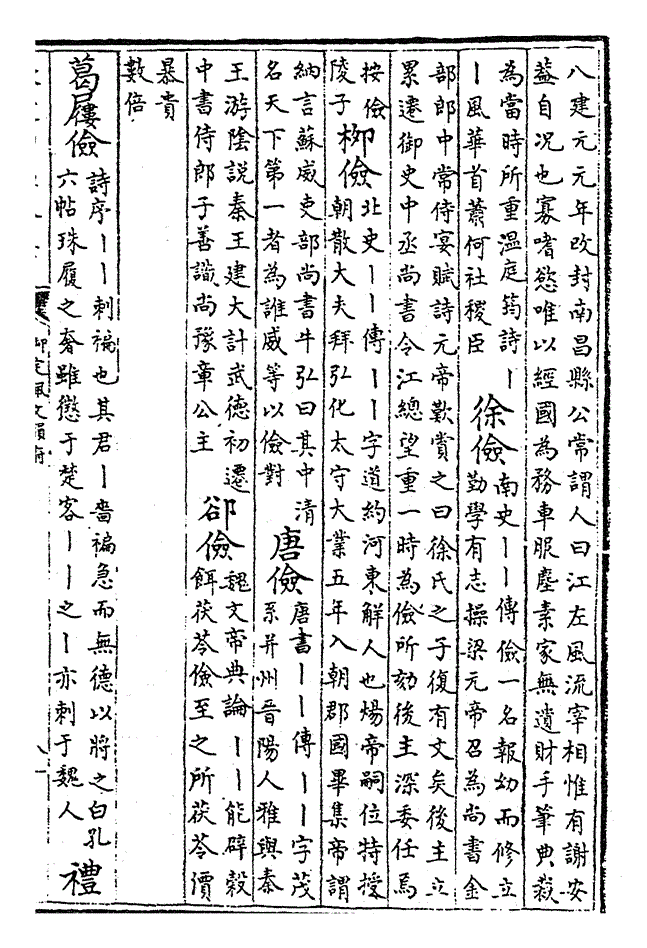 八建元元年改封南昌縣公常謂人曰江左風流宰相惟有謝安
葢自况也寡嗜慾唯以經國為務車服塵素家無遺財手筆典裁
為當時所重温庭筠詩丨
丨風華首蕭何社稷臣
徐儉
南史丨丨傳儉一名報幼而修立
勤學有志操梁元帝召為尚書金
部郎中常侍宴賦詩元帝歎賞之曰徐氏之子復有文矣後主立
累遷御史中丞尚書令江總望重一時為儉所劾後主深委任焉
按儉
陵子
柳儉
北史丨丨傳丨丨字道約河東解人也煬帝嗣位特授
朝散大夫拜弘化太守大業五年入朝郡國畢集帝謂
納言蘇威吏部尚書牛弘曰其中清
名天下第一者為誰威等以儉對
唐儉
唐書丨丨傳丨丨字茂
系并州晉陽人雅與秦
王游陰説秦王建大計武德初遷
中書侍郎子善識尚豫章公主
郤儉
魏文帝典論丨丨能辟穀
餌茯苓儉至之所茯苓價
暴貴
數倍
葛屨儉
詩序丨丨刺褊也其君丨嗇褊急而無德以將之白孔
六帖珠履之奢雖懲于楚客丨丨之丨亦刺于魏人
禮
御定佩文韻府